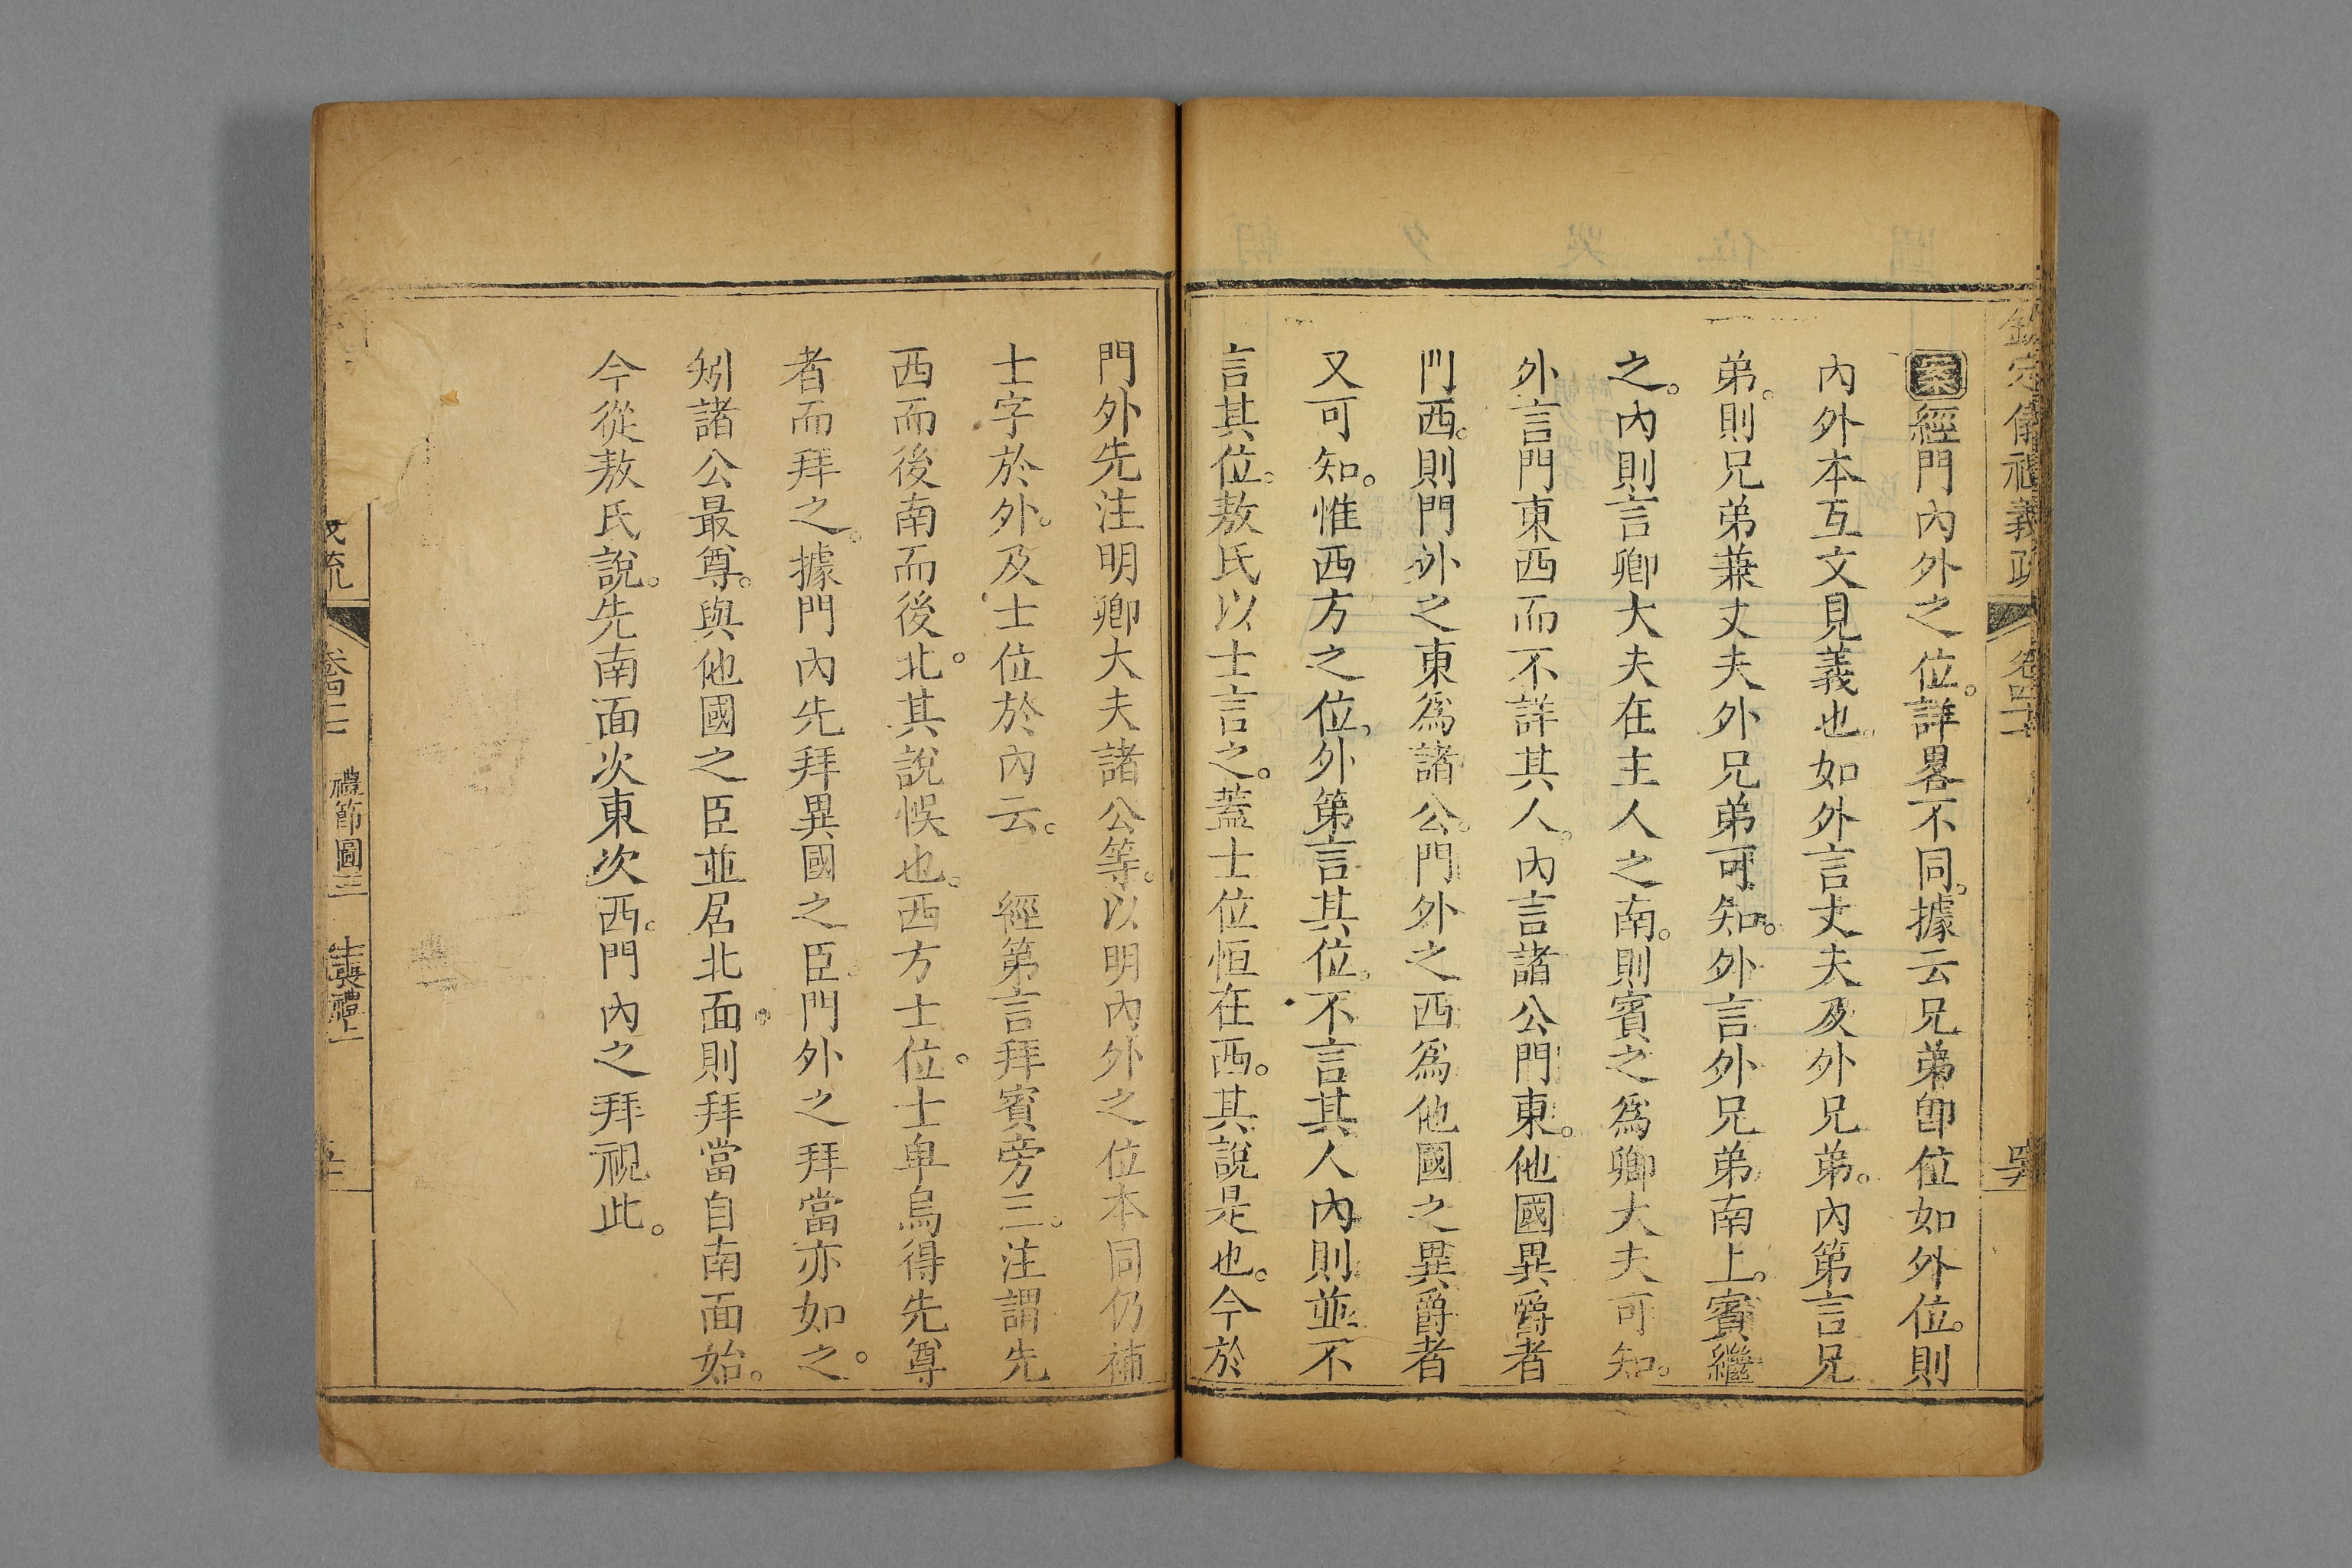 欽定儀禮義疏
案經門內外之位。詳畧不同。據云兄弟卽位如外位。則
內外本互文見義也。如外言丈夫及外兄弟。內第言兄
弟。則兄弟兼丈夫外兄弟可知。外言外兄弟南上。賓繼
之。內則言卿大夫在主人之南。則賓之爲卿大夫可知。
外言門東西而不詳其人。內言諸公門東。他國異爵者
門西。則門外之東爲諸公。門外之西爲他國之異爵者
又可知。惟西方之位。外第言其位。不言其人內則並不
言其位。敖氏以士言之。蓋士位恒在西。其說是也。今於
門外先注明卿大夫諸公等。以明內外之位本同仍補
士字於外。及士位於內云。　經第言拜賓旁三。注謂先
西而後南而後北。其說悞也。西方士位。士卑烏得先尊
者而拜之。據門內先拜異國之臣。門外之拜當亦如之。
矧諸公最尊。與他國之臣並居北面。則拜當自南面始。
今從敖氏說。先南面次東次西。門內之拜視此。
禮節圖三　士喪禮上